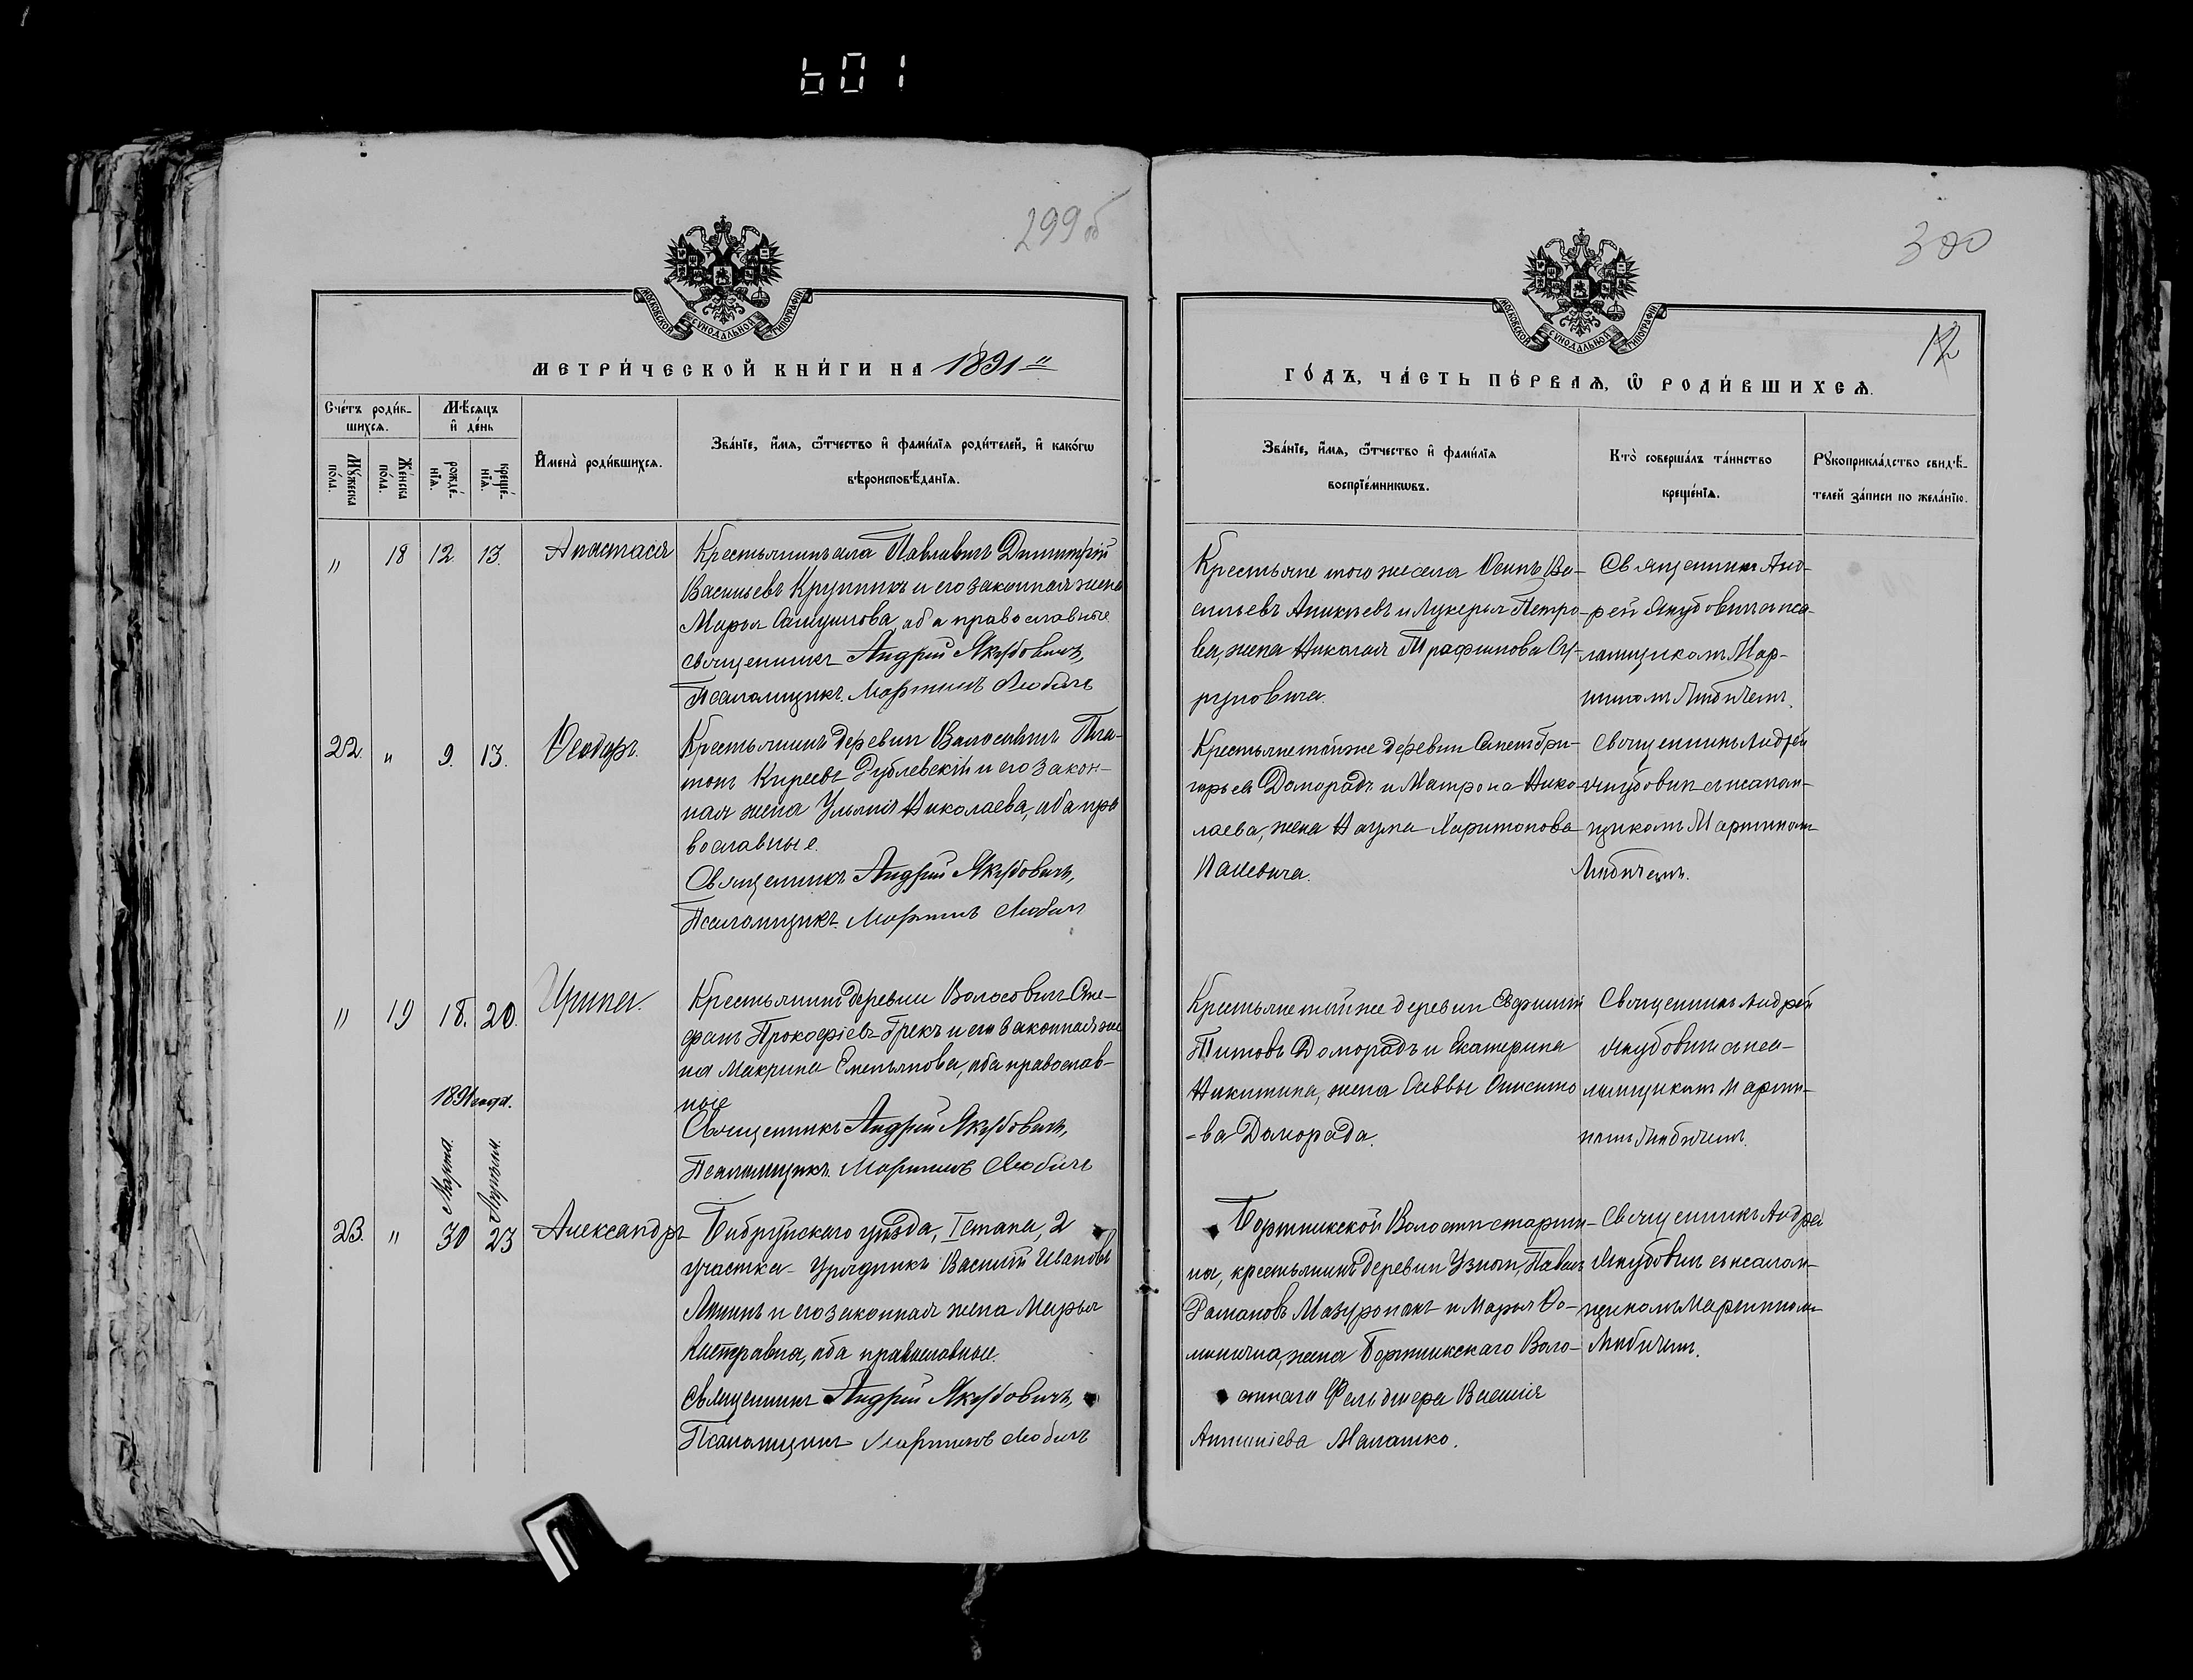 601
299 об
МОСКОВСКОЙ СѴНОДАЛЬНОЙ ТИПОГРАФІИ
МЕТРИ́ЧЕСКОЙ КНИ́ГИ НА 1891
Сче́тъ роди́в-
шихся.
Мѣ́сяцъ
и҆ де́нь
Мꙋ́жеска
по́ла.
Же́нска
по́ла.
рожде́-
нїѧ.
креще́-
нїѧ.
И҆мена̀ роди́вшихсѧ.
Зва́нїе, и҆́мѧ, ѻ҆́тчество и҆ фами́лїѧ роди́телей, и҆ како́гѡ
вѣроисповѣ́данїѧ.
" 18 12. 13. Анастасія
Крестьянинъ села Павлавичъ Димитрій
Васильевъ Крупникъ и его законная жена
Марья Самуилова, оба православные
Священникъ Андрей Якубовичъ,
Псаломщикъ Мартинъ Любичъ
22. " 9. 13. Ѳеодоръ.
Крестьянинъ деревни Валосовичъ Пла-
тонъ Киреевъ Дублевскій и его закон-
ная жена Ульянія Николаева, оба пра
вославные.
Священникъ Андрей Якубовичъ,
Псаломщикъ Мартинъ Любичъ
" 19 18. 20. Ирина.
Крестьянинъ деревни Волосовичъ Сте-
фанъ Прокофіевъ Грекъ и его законная же
на Макрина Емельянова, оба православ-
ные
Священникъ Андрей Якубовичъ,
Псаломщикъ Мартинъ Любичъ
1891 года.
Марта. Апреля.
23. " 30 23 Александръ
Бобруйскаго уѣзда, I стана, 2
участка Урядникъ Василій Ивановъ
и его законная жена Марья
Петравна, оба православные.
Священникъ Андрей Якубовичъ,
Псаломщикъ Мартинъ Любичъ
300
12
МОСКОВСКОЙ СѴНОДАЛЬНОЙ ТИПОГРАФІИ
ГО́ДЪ, ЧА́СТЬ ПЕ́РВАѦ, Ѽ РОДИ́ВШИХСѦ.
Зва́нїе, и҆́мѧ, ѻ҆́тчество и҆ фами́лїѧ
воспрїе́мникѡвъ.
Кто̀ соверша́лъ та́инство
креще́нїѧ.
Рꙋкоприкла́дство свидѣ́-
телей за́писи по жела́нїю.
Крестьяне того же села Осипъ Ва-
сильевъ Аникіевъ и Лукерья Петро-
ва, жена Николая Трафимова Су-
руновича.
Священникъ Анд-
рей Якубовичъ с пса-
ломщикомъ Мар-
тиномъ Любичемъ.
Крестьяне той же деревни Гри-
горьевъ Доморадъ и Матрона Нико-
лаева, жена Наума Харитонова
Пацевича.
Священникъ Андрей
Якубовичъ с псалом-
щикомъ Мартиномъ
Любичемъ.
Крестьяне той же деревни Евфимій
Титовъ Доморадъ и Екатерина
Никитина, жена Саввы Онисимо
=ва Доморада.
Священникъ Андрей
Якубовичъ с пса-
ломщикомъ Марти-
номъ Любичемъ.
Бортникской Волости старши-
на, крестьянинъ деревни Узнотъ, Павелъ
Романовъ Мазуронакъ и Марья Фо-
минична, жена Бортникскаго Воло-
стнаго Фельдшера Василія
Антоніева Малашко.
Священникъ Андрей
Якубовичъ с псалом-
щикомъ Мартиномъ
Любичемъ.